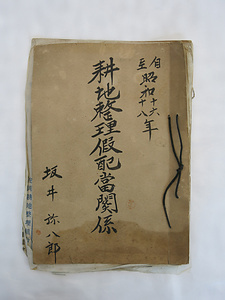 自昭和十六年
至昭和十八年
耕地整理假配當関係
坂井弥八郎